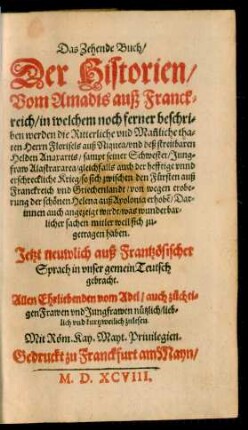 Das Zehende Buch/
Der Historien/
Vom Amadis auß Franck-
reich/in welchem noch ferner beschri-
ben werden die Ritterliche vnd Mañliche tha-
ten Herrn Florisels auß Niquea/vnd deß streitbaren
Helden Anaxartis/ sampt seiner Schwester/Jung-
fraw Alastraxarea/gleichfalls auch der hefftige vnnd
erschreckliche Krieg/so sich zwischen den Fürsten auß
Franckreich vnd Griechenlandt/von wegen erobe-
rung der schönen Helena auß Apolonia erhobē/Dar-
innen auch angezeigt wirdt/was wunderbar-
licher sachen mitler weil sich zu-
getragen haben.
Jetzt neuwlich auß Frantzösischer
Sprach in vnser gemein Teutsch
gebracht.
Allen Ehrliebenden vom Adel/auch züchti-
gen Frawen vnd Jungfrawen nützlich/lieb-
lich vnd kurzweilich zulesen.
Mit Röm. Kay. Mayt. Privilegien.
Gedruckt zu Franckfurt am Mayn/
M. D. XCVIII.